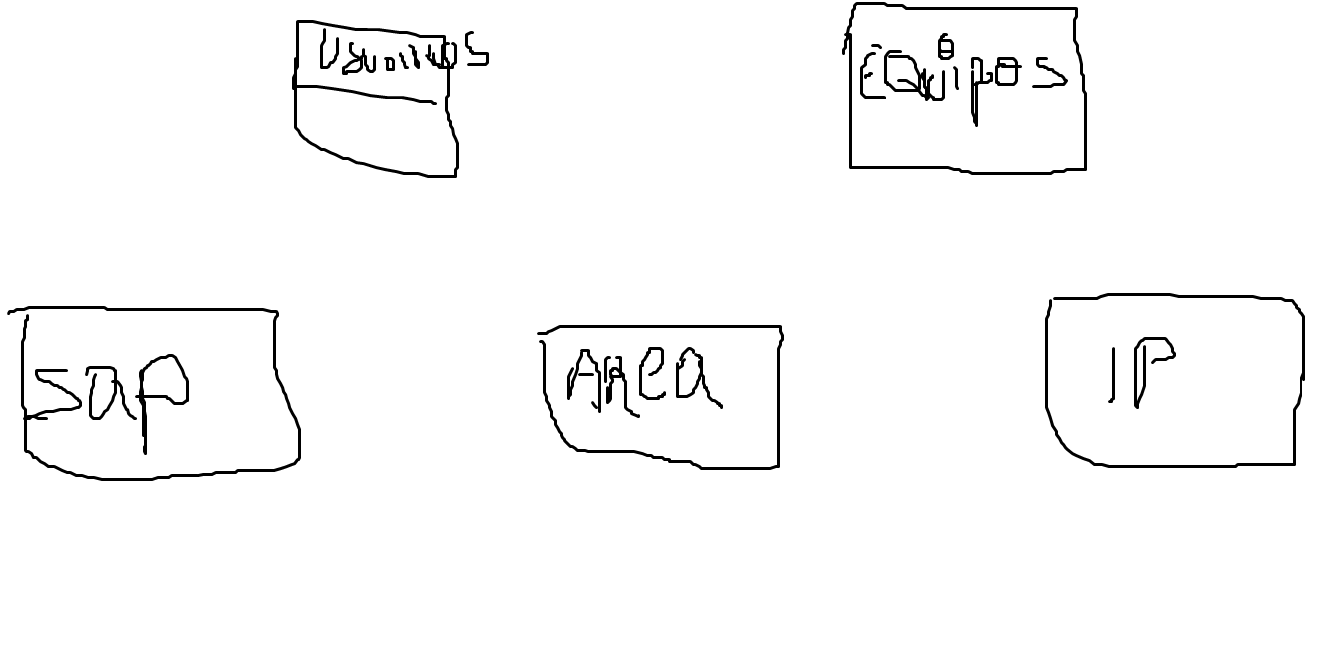 Usuarios
EQuipos
sap
Area
IP